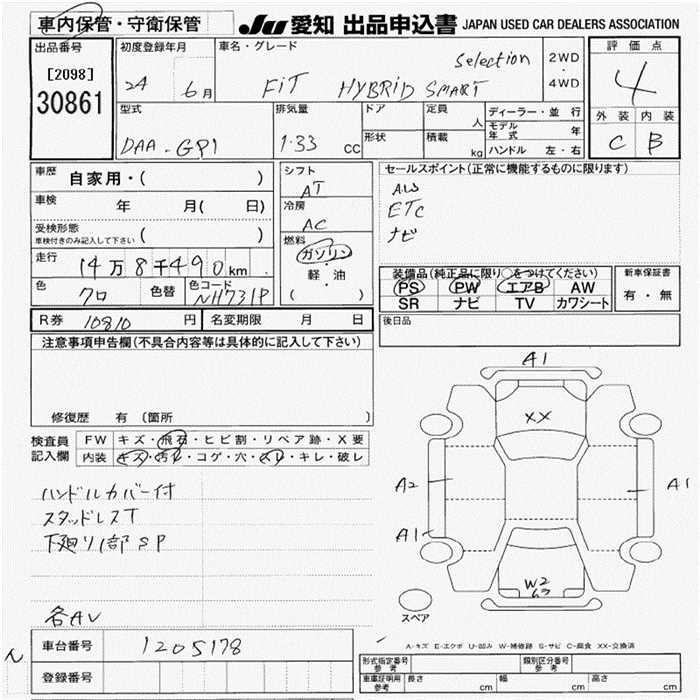 車内保管・守衛保管
JU 愛知 出品申込書 JAPAN USED CAR DEALERS ASSOCIATION
出品番号
[2098]
30861
初度登録年月
24 6月
車名・グレード
Selection
FIT HYBRID SMART
2WD
・
4WD
評価点
4
外装 内装
C B
型式
DAA-GP1
排気量
1.33 cc
ドア
形状
定員
人
積載
kg
ディーラー・並行
モデル年式 年
ハンドル 左・右
車歴
自家用・( )
車検
年 月( 日)
受検形態
車検付きのみ記入して下さい ( )
走行
14万8千490km
色
クロ
色替
色コード
NH731P
シフト
AT
冷房
AC
燃料
ガソリン
・
軽・油
( )
セールスポイント(正常に機能するものに限ります)
ETC
ナビ
装備品(純正品に限り○をつけてください)
PS PW エアB AW
SR ナビ TV カワシート
新車保証書
有・無
R券 10810 円
名変期限 月 日
後日品
注意事項申告欄(不具合内容等は具体的に記入して下さい)
修復歴 有 (箇所
検査員
記入欄
FW キズ・飛石・ヒビ割・リペア跡・X要
内装 キズ・汚レ・コゲ・穴・スレ・キレ・破レ
ハンドルカバー付
スタッドレスT
下廻り1部SP
各AV
A1
XX
A2
A1
A1
W2
スペア
車台番号
1205178
登録番号
A-キズ E-エクボ U-凹み W-補修跡 S-サビ C-腐食 XX-交換済
形式指定番号
参考
類別区分番号
参考
車庫証明用
参考
長さ cm 幅 cm 高さ cm
ん